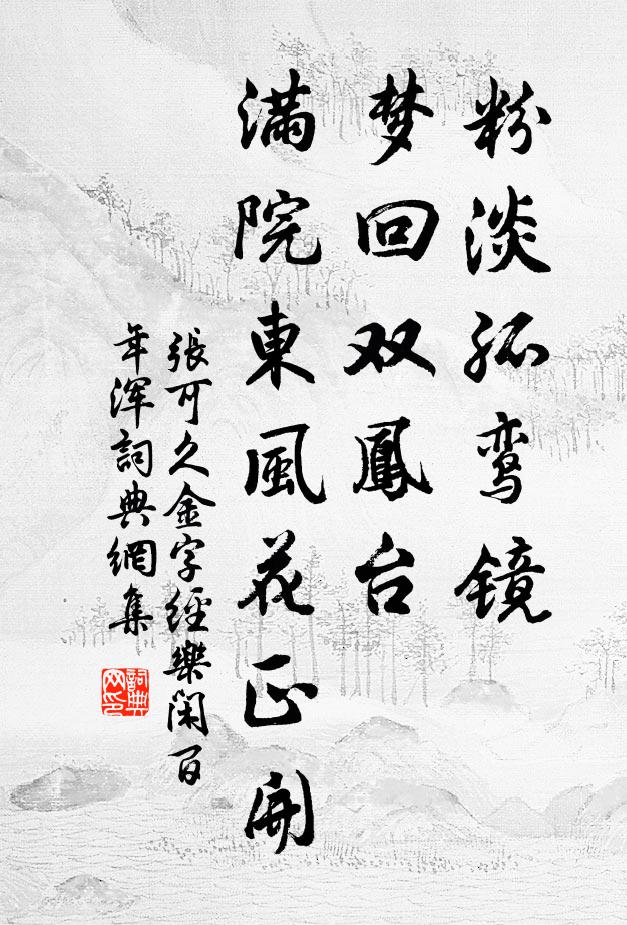 粉淡孤鸾镜
梦回双鳳台
满院東風花正開
張可久金字經樂闲百
年浑詞典網集
詞典网印